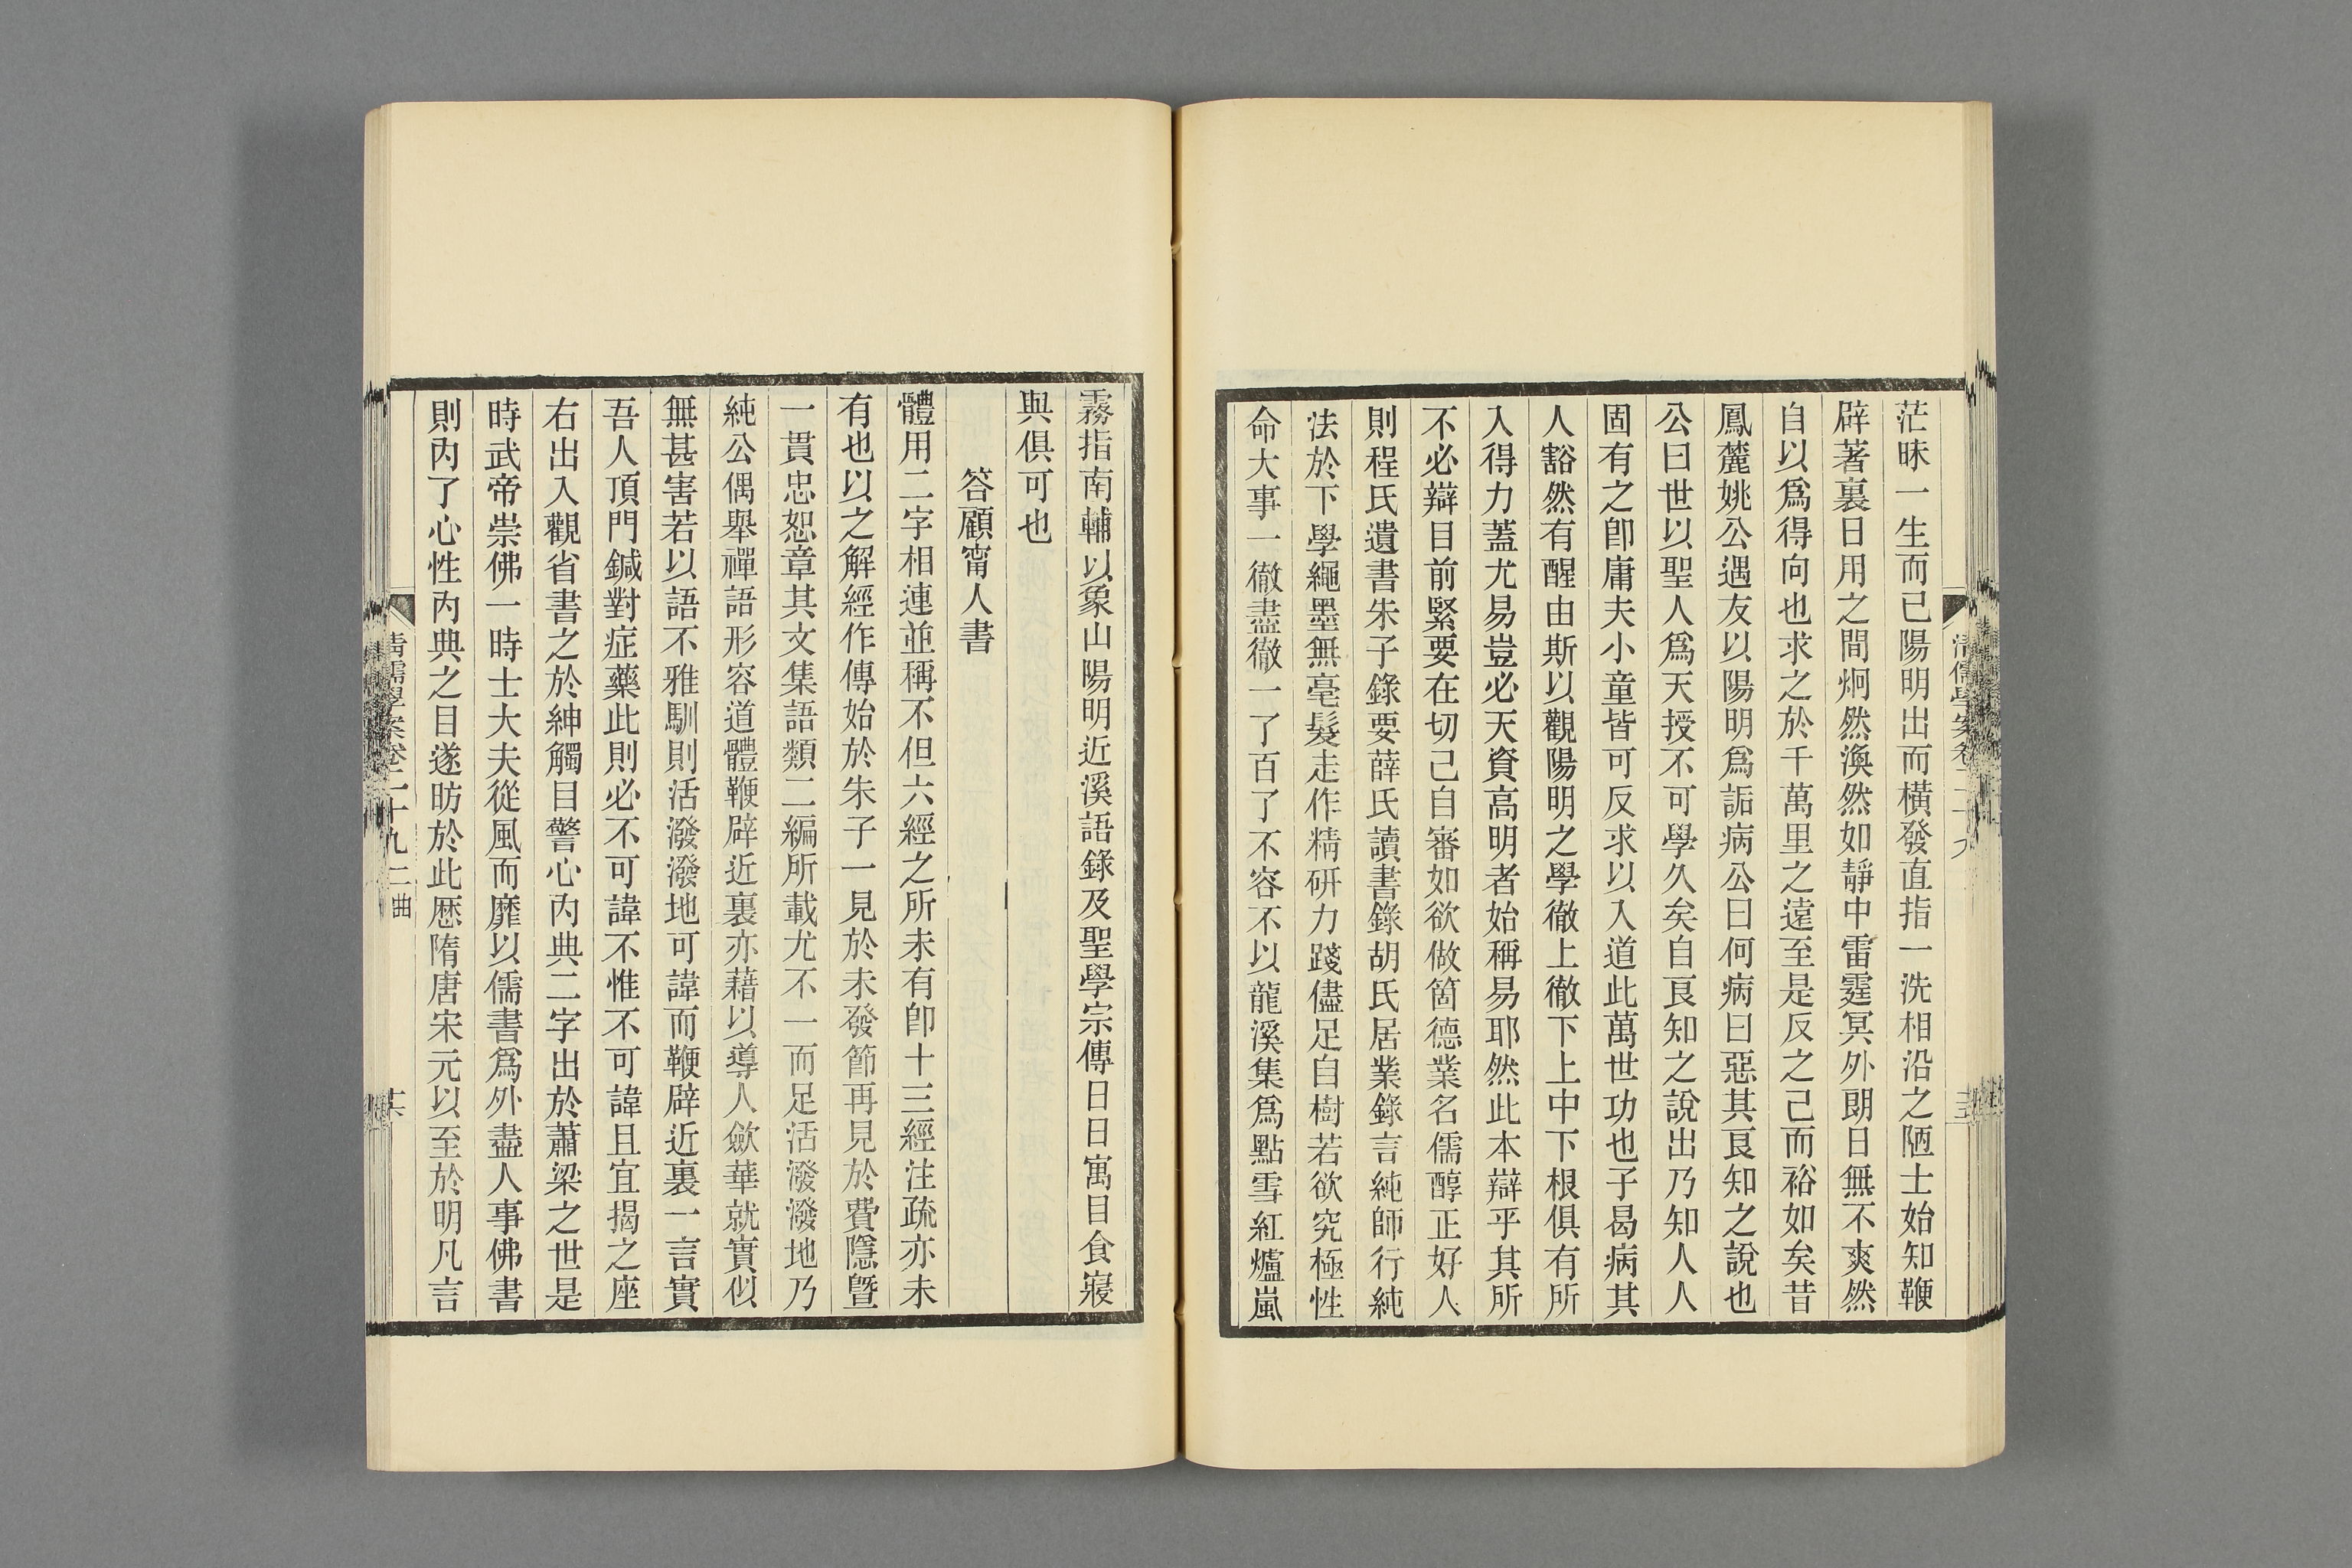 茫昧一生而已陽明出而橫發直指一洗相沿之陋士始知鞭
辟著裏日用之間炯然渙然如靜中雷霆冥外朗日無不爽然
自以爲得向也求之於千萬里之遠至是反之己而裕如矣昔
鳳麓姚公遇友以陽明爲詬病公曰何病曰惡其良知之說也
公曰世以聖人爲天授不可學久矣自良知之說出乃知人人
固有之卽庸夫小童皆可反求以入道此萬世功也子曷病其
人豁然有醒由斯以觀陽明之學徹上徹下上中下根俱有所
入得力蓋尤易豈必天資高明者始稱易耶然此本辯乎其所
不必辯目前緊要在切己自審如欲做箇德業名儒醇正好人
則程氏遺書朱子錄要薛氏讀書錄胡氏居業錄言純師行純
法於下學繩墨無毫髮走作精研力踐儘足自樹若欲究極性
命大事一徹盡徹一了百了不容不以龍溪集爲點雪紅爐嵐
霧指南輔以象山陽明近溪語錄及聖學宗傳日日寓目食寢
與俱可也
答顧甯人書
體用二字相連並稱不但六經之所未有卽十三經注疏亦未
有也以之解經作傳始於朱子一見於未發節再見於費隱暨
一貫忠恕章其文集語類二編所載尤不一而足活潑潑地乃
純公偶舉禪語形容道體鞭辟近裏亦藉以導人斂華就實似
無甚害若以語不雅馴則活潑潑地可諱而鞭辟近裏一言實
吾人頂門鍼對症藥此則必不可諱不惟不可諱且宜揭之座
右出入觀省書之於紳觸目警心內典二字出於蕭梁之世是
時武帝崇佛一時士大夫從風而靡以儒書爲外盡人事佛書
則內了心性內典之目遂昉於此歷隋唐宋元以至於明凡言
清儒學案卷二十九二曲